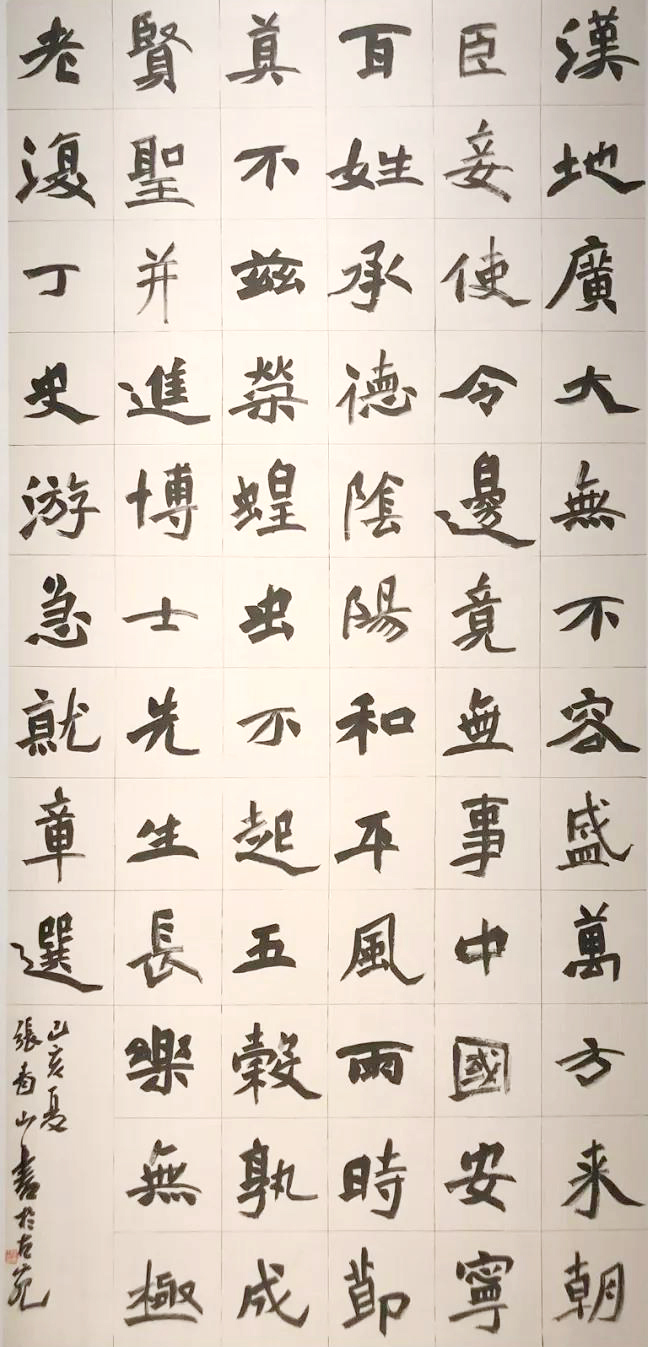 漢地廣大無不容盛萬方来朝
臣妾使令邊竟無事中國安寧
百姓承德陰陽和平風雨時莭
莫不兹榮蝗虫不起五榖孰成
賢聖并進博士先生長樂無極
老復丁史游急就章選
己亥夏
張山書於古苑